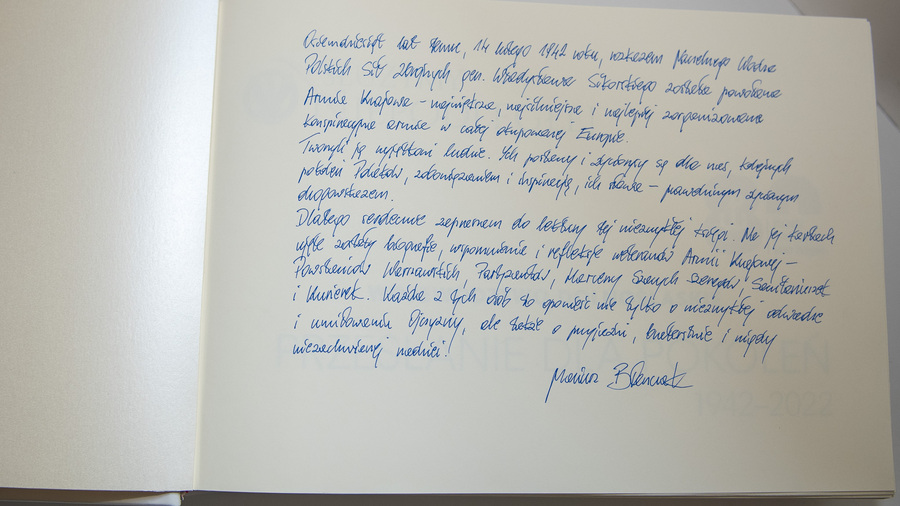 Osiemdziesiąt lat temu, 14 lutego 1942 roku, rozkazem Naczelnego Wodza
Polskich Sił Zbrojnych gen. Władysława Sikorskiego została powołana
Armia Krajowa – największa, najsilniejsza i najlepiej zorganizowana
konspiracyjna armia w całej okupowanej Europie.
Tworzyli ją wyjątkowi ludzie. Ich postawy i życiorysy są dla nas, kolejnych
pokoleń Polaków, zobowiązaniem i inspiracją, ich słowa – prawdziwym życiowym
drogowskazem.
Dlatego serdecznie zapraszam do lektury tej niezwykłej księgi. Na jej kartach
ujęte zostały biografie, wspomnienia i refleksje weteranów Armii Krajowej –
Powstańców Warszawskich, Partyzantów, Harcerzy Szarych Szeregów, Sanitariuszek
i Kurierek. Każda z tych osób to opowieść nie tylko o niezwykłej odwadze
i umiłowaniu Ojczyzny, ale także o przyjaźni, braterstwie i nigdy
niezachwianej nadziei!
Mariusz Błaszczak
POKOLEŃ
1942–2022